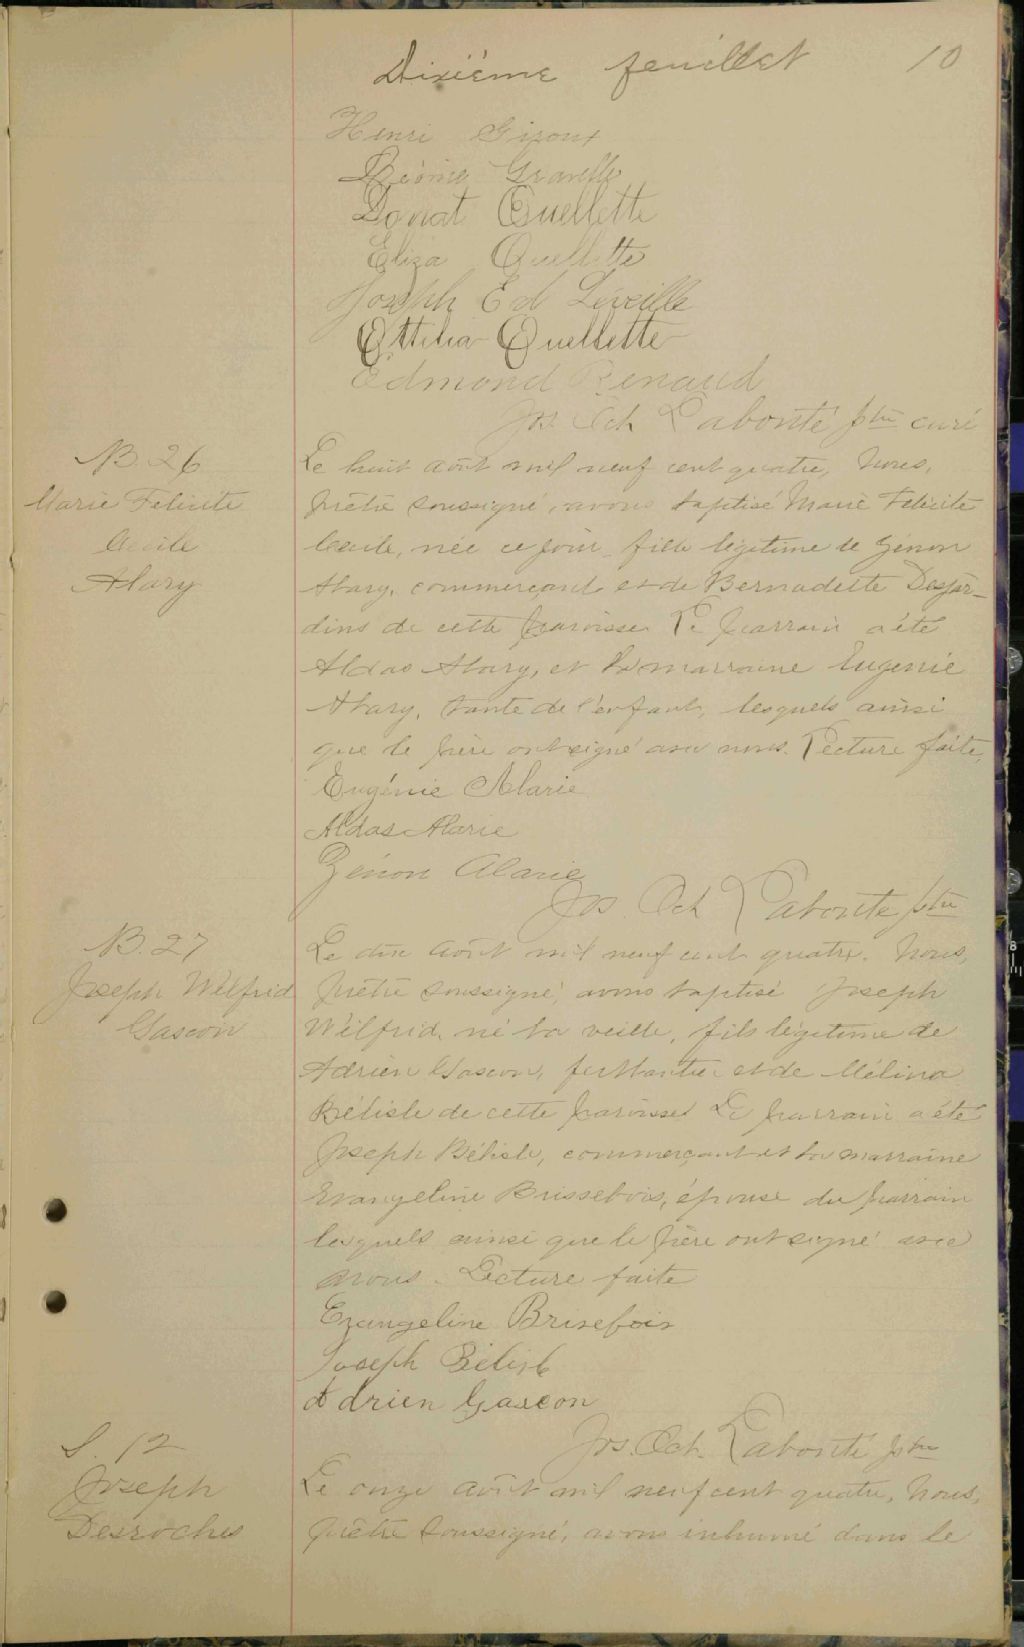 Dixième feuillet 10
Henri Giroux
Léonie Gravelle
Donat Ouellette
Eliza Ouellette
Joseph Ed Léveillé
Ottilia Ouellette
Edmond Renaud
Jos. Och Labonté ptre curé
B. 26
Marie Félicité
Cécile
Alary
Le huit août mil neuf cent quatre, Nous,
prêtre soussigné, avons baptisé Marie Félicité
Cécile, née ce jour, fille légitime de Zénon
Alary, commerçant et de Bernadette Desjar-
dins de cette paroisse. Le parrain a été
Aldas Alary, et la marraine Eugenie
Alary, tante de l'enfant, lesquels ainsi
que le père ont signé avec nous. Lecture faite,
Eugénie Alarie
Aldas Alarie
Zénon Alarie
Jos. Och Labonté ptre
B. 27
Joseph Wilfrid
Gascon
Le dix août mil neuf cent quatre. Nous,
prêtre soussigné, avons baptisé Joseph
Wilfrid, né la veille, fils légitime de
Adrien Gascon, ferblantier et de Mélina
Bélisle de cette paroisse. Le parrain a été
Joseph Bélisle, commerçant et la marraine
Evangeline Brissebois, épouse du parrain
lesquels ainsi que le père ont signé avec
nous. Lecture faite
Evangeline Brisebois
Joseph Bélisle
Adrien Gascon
Jos. Och. Labonté ptre
S. 12
Joseph
Desroches
Le onze août mil neuf cent quatre, Nous,
prêtre soussigné, avons inhumé dans le